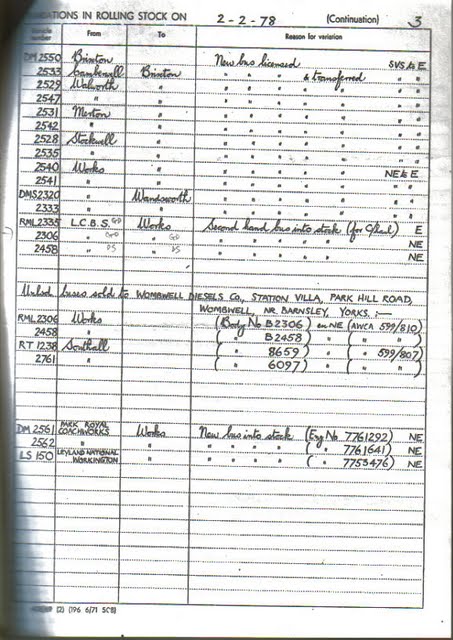 ATIONS IN ROLLING STOCK ON 2-2-78 (Continuation) 3
number From To Reason for variation
DM 2550 Brixton New bus licensed SVS & E
2533 Camberwell Brixton " " " & transferred " "
2529 Walworth " " " " " " " "
2547 " " " " " " " " "
2531 Merton " " " " " " " "
2542 " " " " " " " " "
2528 Stockwell " " " " " " " "
2535 " " " " " " " " "
2540 Works " " " " " " NE & E
2541 " " " " " " " " "
DMS 2320 " Wandsworth " " " " " " "
2333 " " " " " " " " "
RML 2335 L.C.B.S. GD Works Second hand bus into stock (for O/haul) E
2306 " GD " GD " " " " " " NE
2458 " DS " DS " " " " " " NE
buses sold to WOMBWELL DIESELS Co., STATION VILLA, PARK HILL ROAD,
WOMBWELL, NR. BARNSLEY, YORKS. :—
RML 2306 Works (Body No B2306) on NE (AWCA 599/810)
2458 " ( " B2458 ) " ( " " )
RT 1238 Southall ( " 8659 ) " ( " 599/807)
2761 " ( " 6097 ) " ( " " )
DM 2561 PARK ROYAL COACHWORKS Works New bus into stock (Eng No 7761292) NE
2562 " " " " " " ( " 7761641) NE
LS 150 LEYLAND NATIONAL WORKINGTON " " " " " ( " 7753476) NE
(2) (196 6/71 SCB)